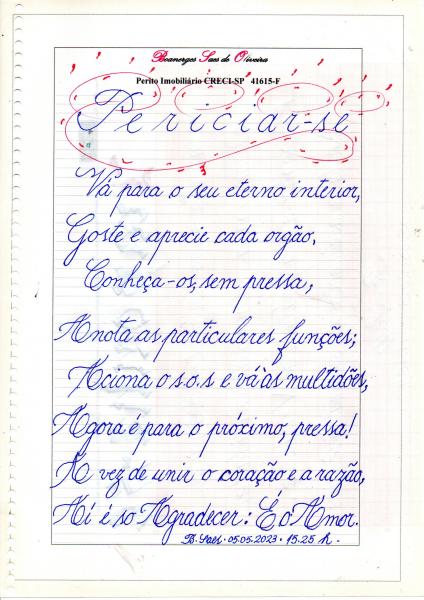 Boanerges Saes de Oliveira
Perito Imobiliário CRECI-SP 41615-F
Periciar-se
Vá para o seu eterno interior,
Goste e aprecie cada orgão.
Conheça-os, sem pressa,
Anota as particulares funções;
Aciona o s.o.s e vá às multidões,
Agora é para o próximo, pressa!
A vez de unir o coração e a razão,
Aí é so Agradecer: É o Amor.
B. Saes. 05.05.2023 - 15.25 h.-